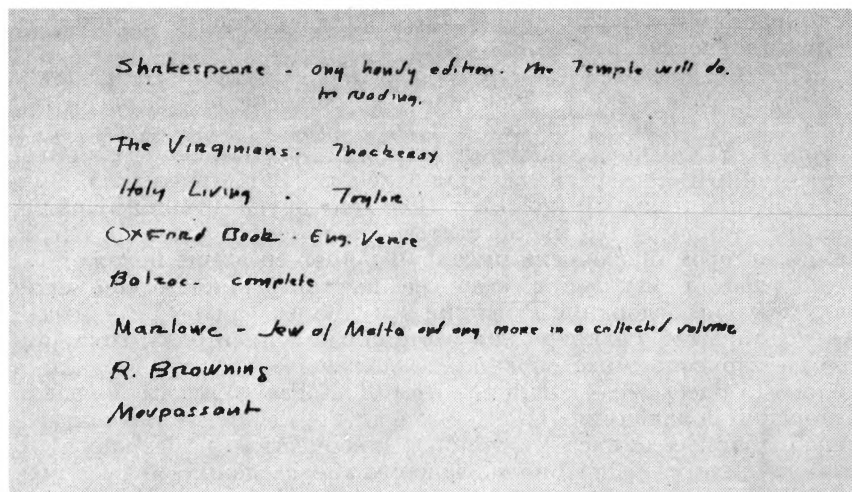 Shakespeare - any handy edition. The Temple will do.
to reading.
The Virginians. Thackeray
Holy Living . Taylor
Oxford Book. Eng. Verse
Balzac - complete
Marlowe - Jew of Malta and any more in a collected volume
R. Browning
Maupassant